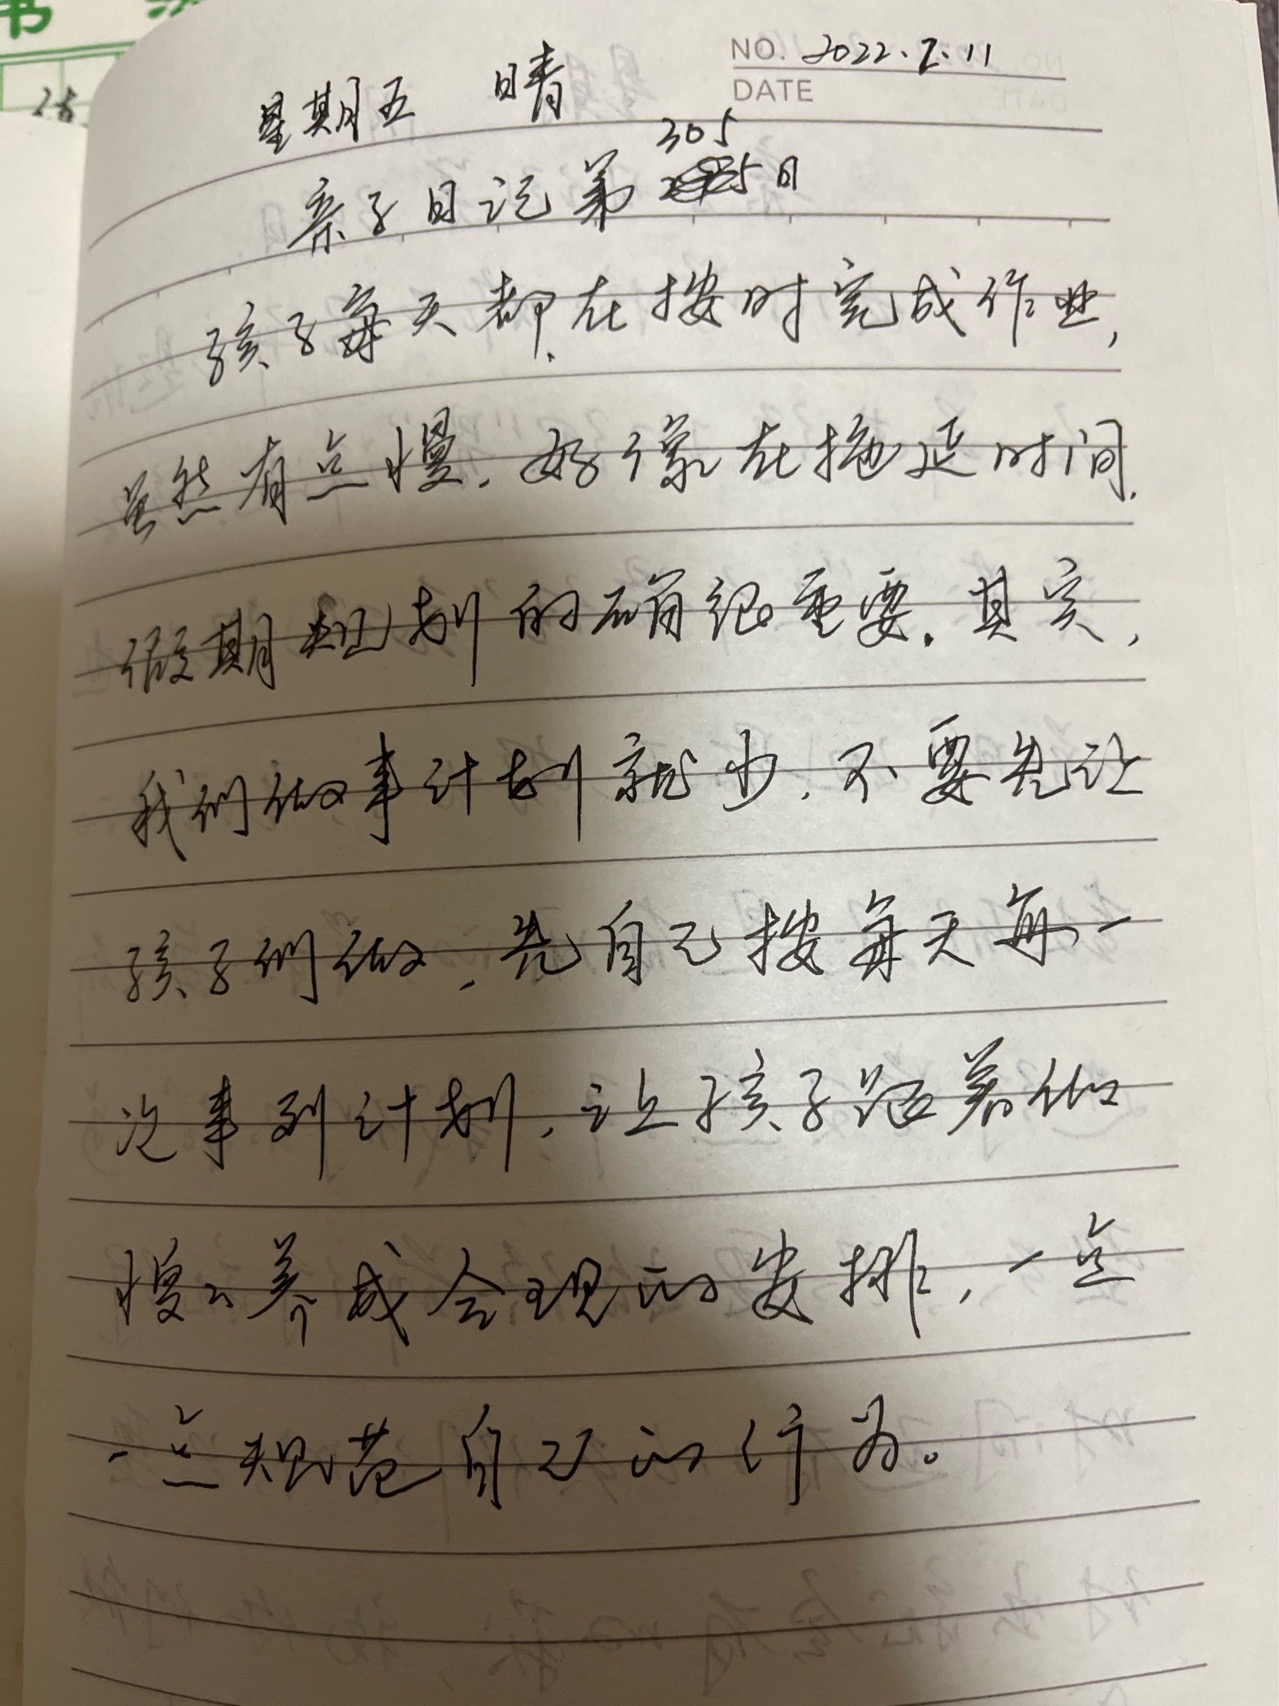 NO. 2022.2.11
DATE
星期五 晴
305
亲子日记第 5日
孩子每天都在按时完成作业,
虽然有点慢.好像在拖延时间.
假期规划的确很重要.其实,
我们做事计划就少.不要先让
孩子们做,先自己按每天每一
次事列计划,让孩子跟着做
慢々养成合理的安排,一点
一点规范自己的行为。